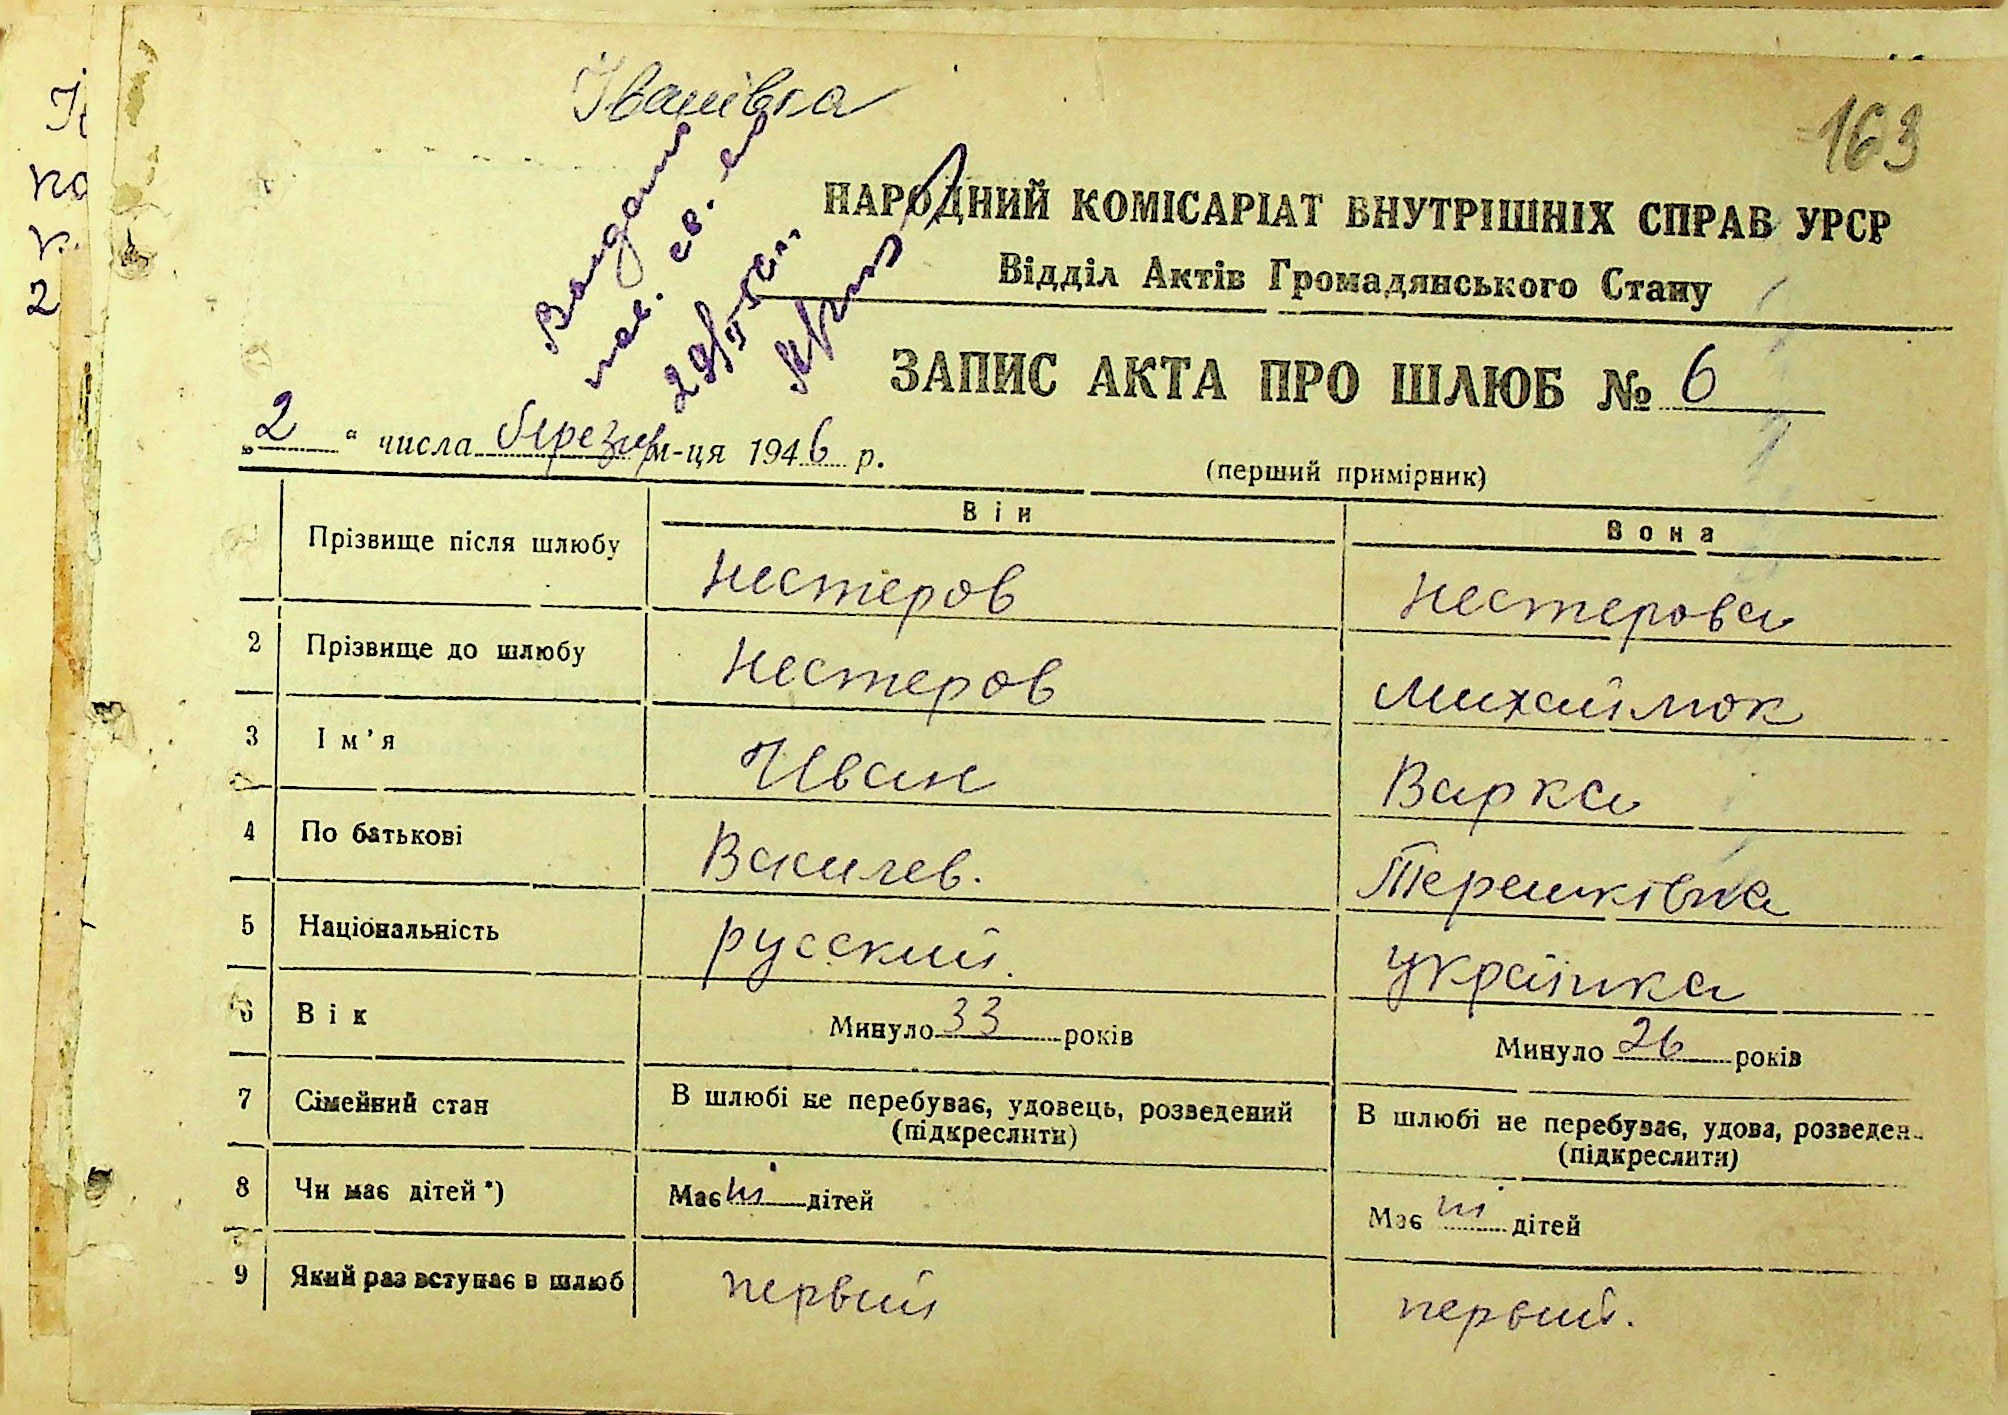 Іванівка
163
Видано
пов. св. во
29/V 50 г.
НАРОДНИЙ КОМІСАРІАТ ВНУТРІШНІХ СПРАВ УРСР
Відділ Актів Громадянського Стану
ЗАПИС АКТА ПРО ШЛЮБ № 6
„ 2 “ числа березня м-ця 1946 р.
(перший примірник)
Він Вона
Прізвище після шлюбу Нестеров Нестерова
2 Прізвище до шлюбу Нестеров Михаймюк
3 Ім’я Иван Варка
4 По батькові Василев. Терешківна
5 Національність русский. українка
6 Вік Минуло 33 років Минуло 26 років
7 Сімейний стан В шлюбі не перебуває, удовець, розведений (підкреслити) В шлюбі не перебуває, удова, розведен (підкреслити)
8 Чи має дітей *) Має ні дітей Має ні дітей
9 Який раз вступає в шлюб первий первий.